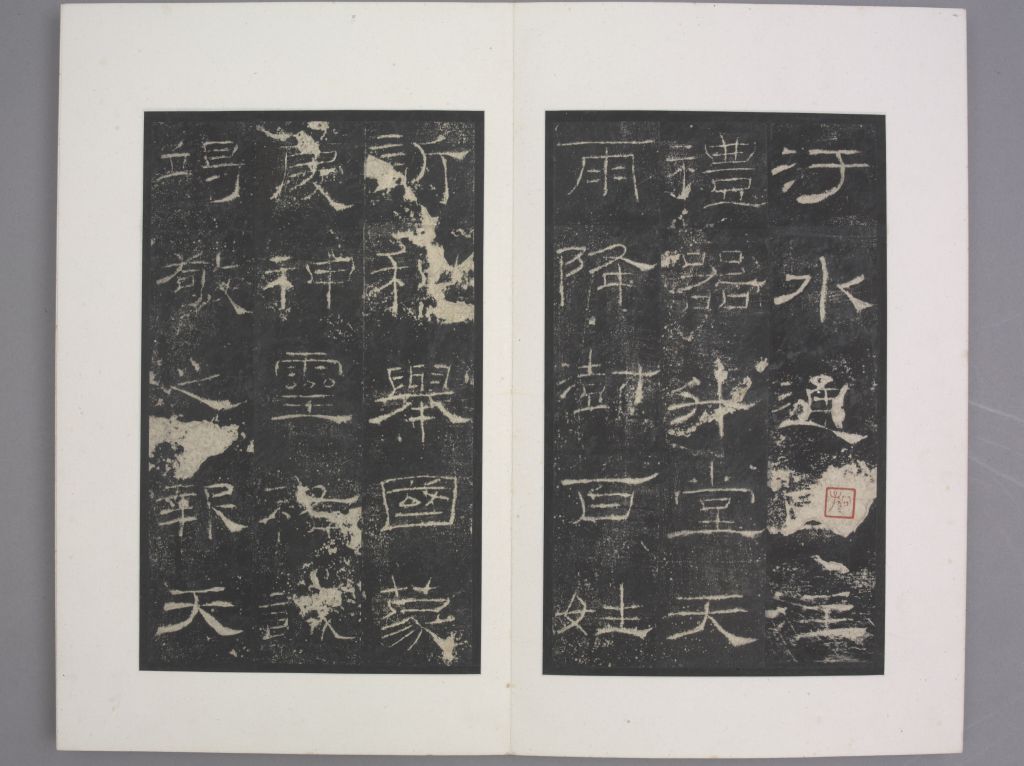 汙水通四注
禮器升堂天
雨降澍百姓
訢和舉國蒙
慶神靈祐誠
竭敬之報天